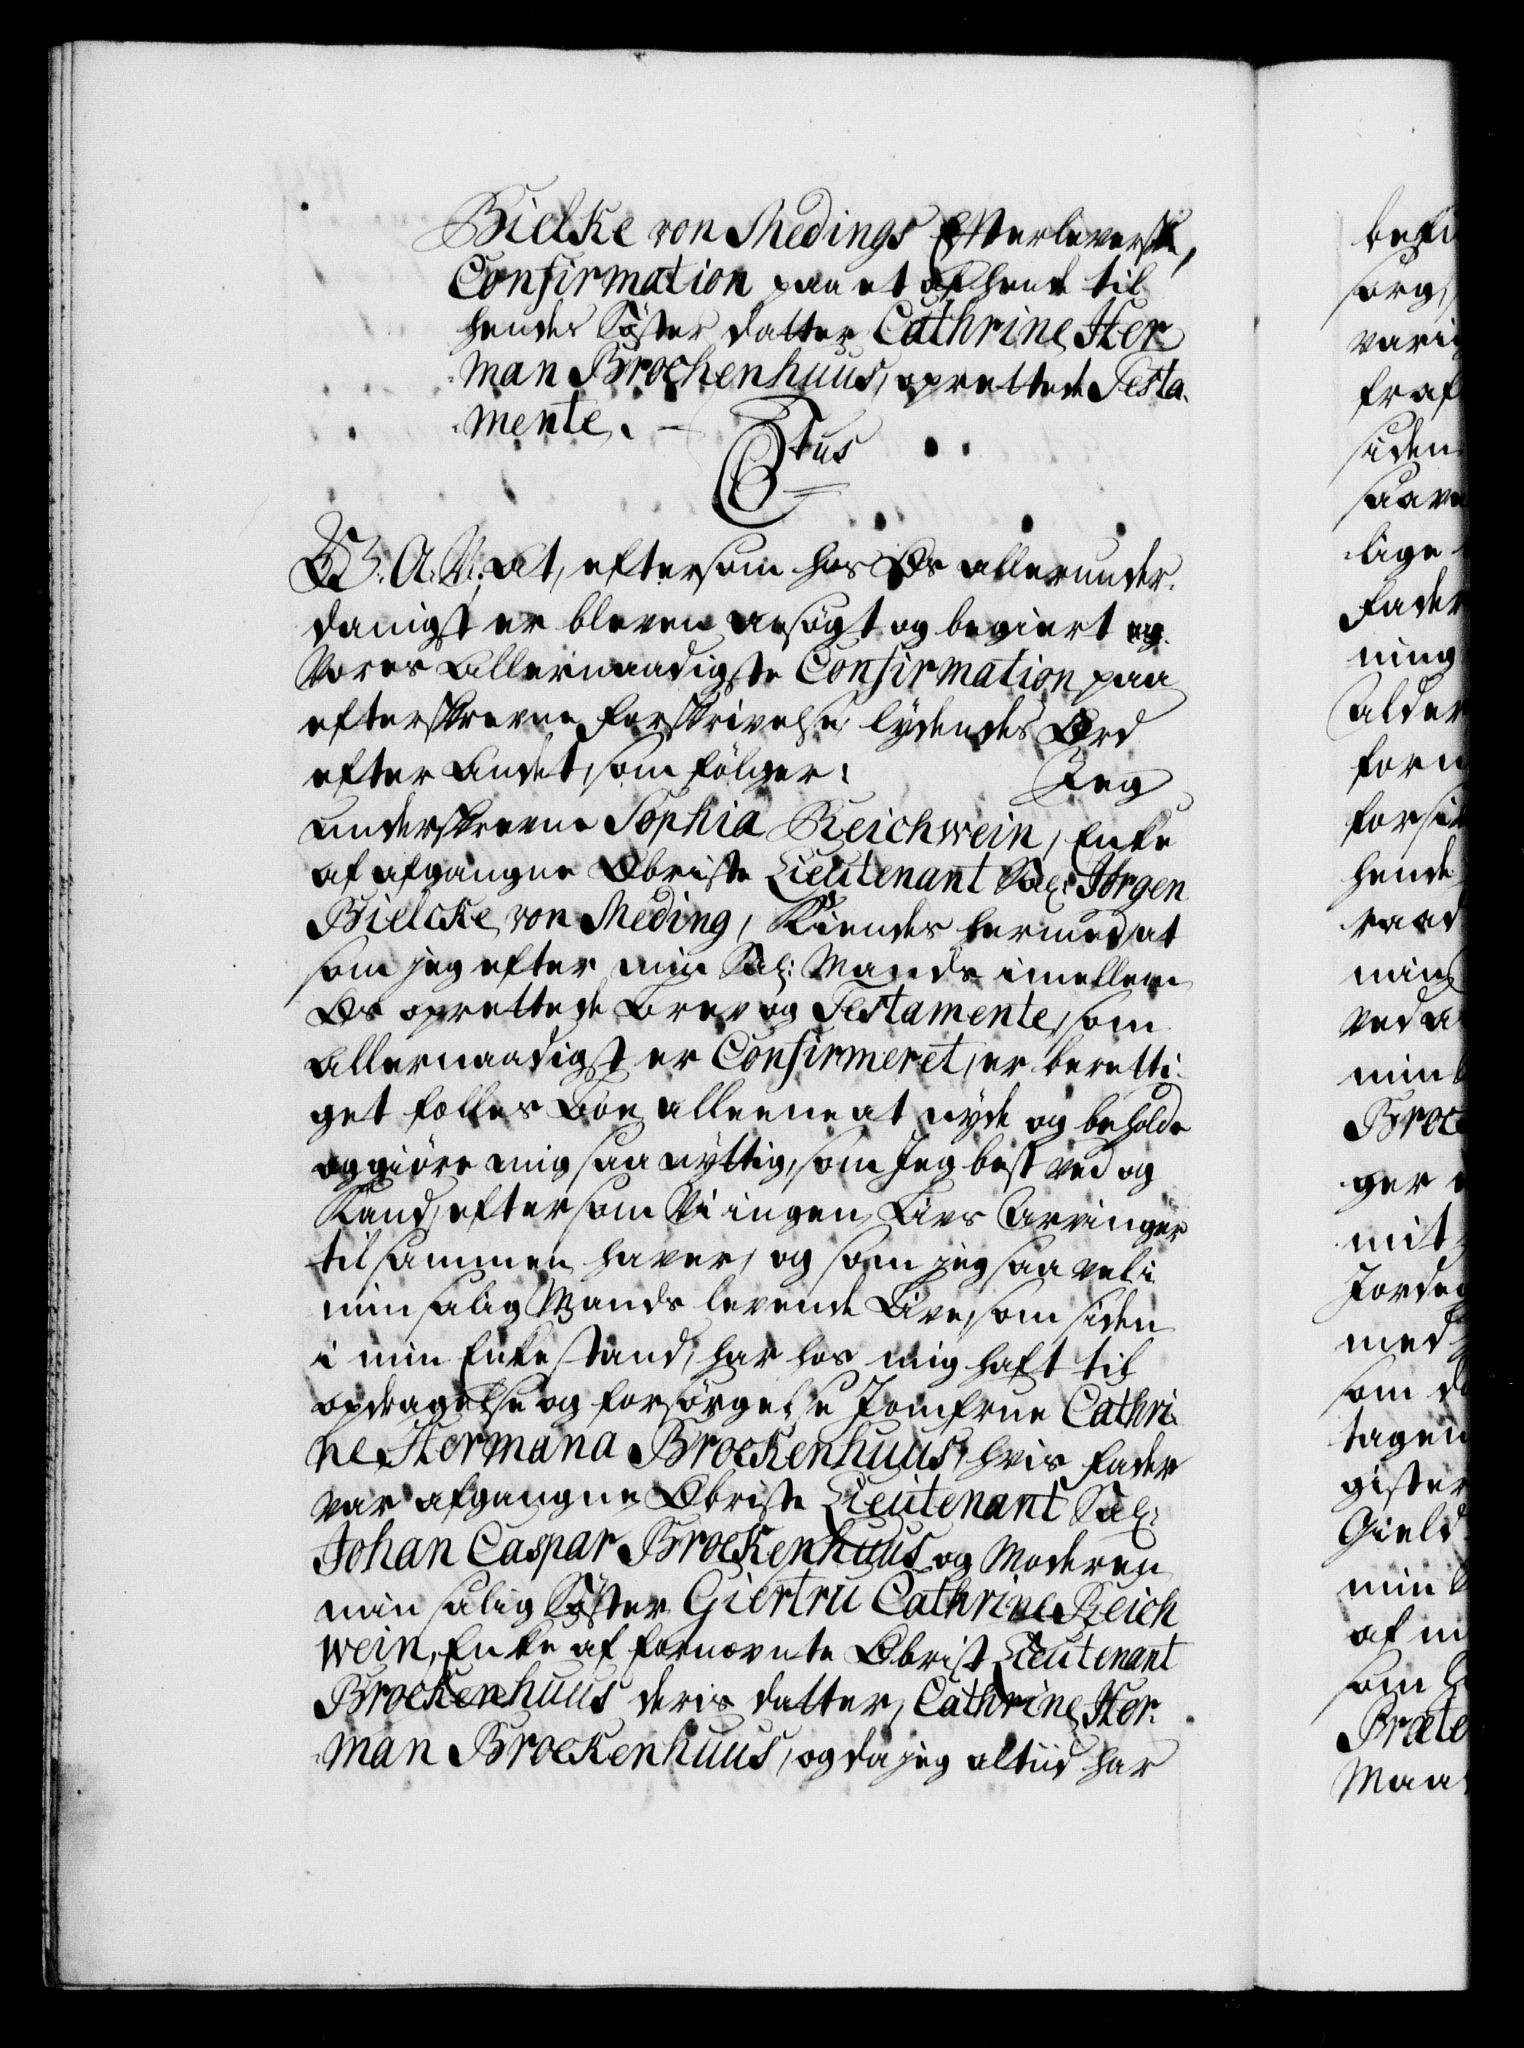 Bielke von Medings Efterleverske,
Confirmation paa et af hende til
hendes Søster datter Cathrine Her
man Brochenhuus, oprettede Testa-
mente.
Ctus
G. A. V. at, eftersom hos Os allerunder-
danigst er bleven ansøgt og begiert og
Vores Allernaadigste Confirmation paa
efterskrevne forskrivelse lydendes Ord
efter Andet, som følger: Jeg
underskrevne Sophia Reichwein, Enke
af afgangne Obriste Lieutenant Sal: Jørgen
Bielcke von Meding, Kiendes hermed, at
som jeg efter min Sal: Mands imellem
Os oprettede brev og Testamente, som
Allernaadigst er Confirmeret, er beretti-
get fælles Boe alleene at nyde og beholde
og giøre mig saa nyttig, som Jeg best ved og
Kand, eftersom Vi ingen Livs Arvinger
tilsammen haver, og som jeg saa vel i
min salig Mands levende Live, som siden
i min Enkestand, har hos mig haft til
opdragelse og forsørgelse Jomfrue Cathri-
ne Hermana Brockenhuus, hvis fader
var afgangne Obriste Lieutenant Sal:
Johan Caspar Brockenhuus og Moderen
min salig Søster Giertru Cathrine Reich
wein, Enke af fornævnte Obrist Lieutenant
Brockenhuus deris datter, Cathrine Her-
man Brockenhuus, og da jeg altiid har